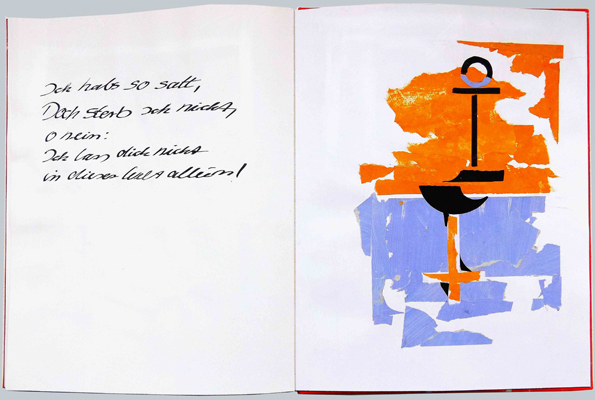 Ich habs so satt,
Doch sterb ich nicht,
o nein:
Ich lass dich nicht
in dieser Welt allein!